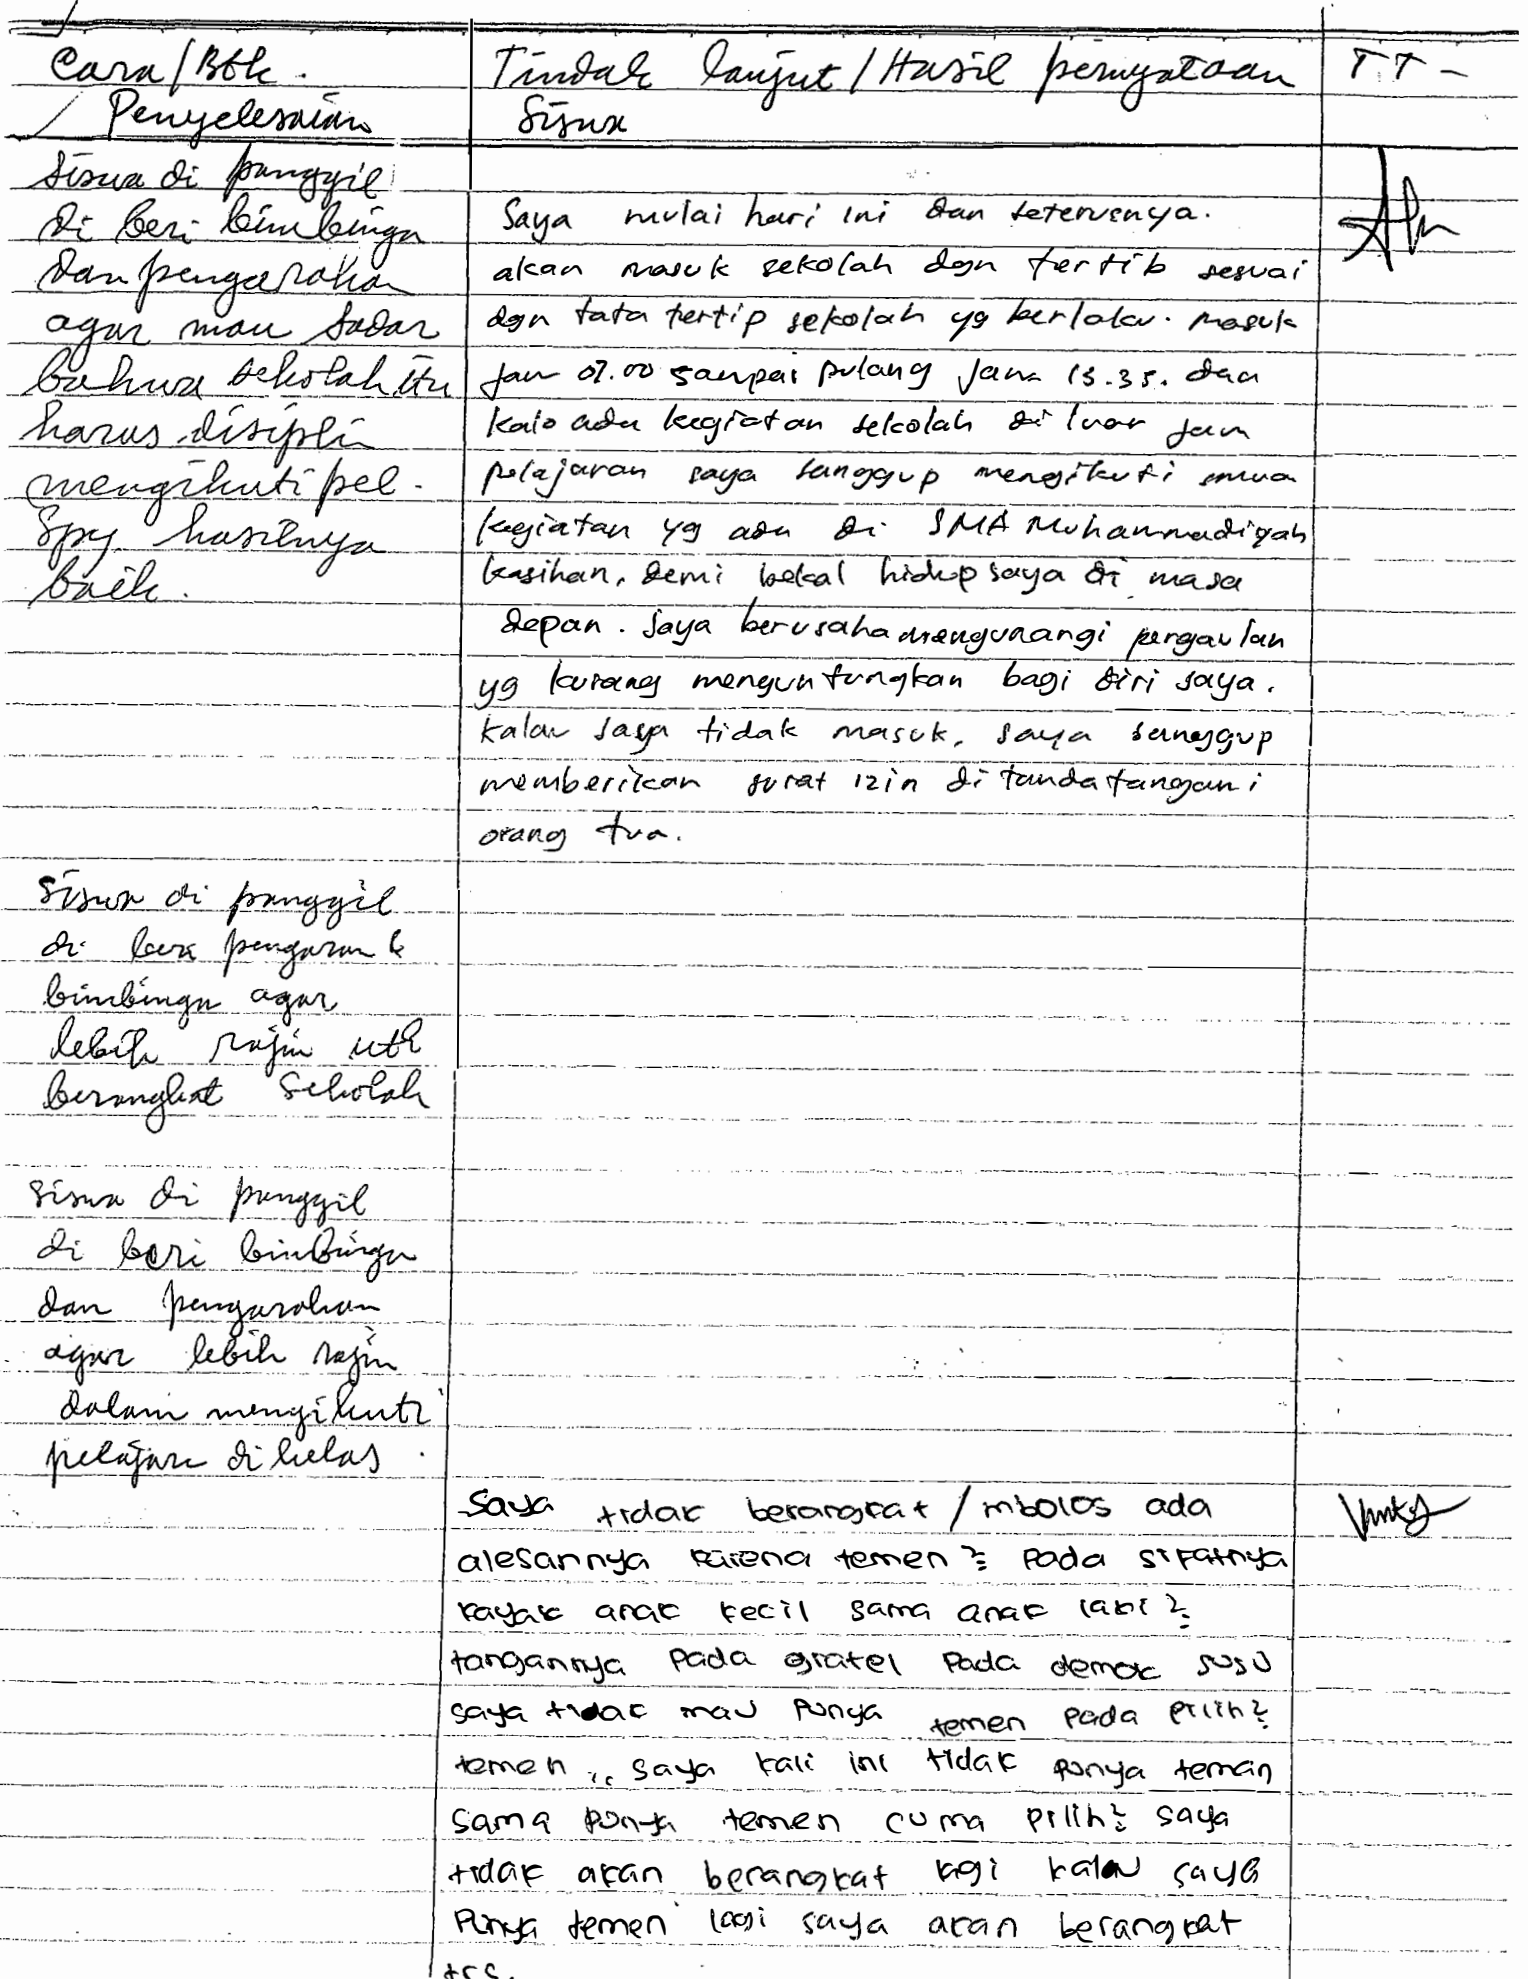 Cara/Btk.
Penyelesaian
Tindak lanjut/Hasil pernyataan
Siswa
TT-
Siswa di panggil
di beri bimbinga
dan pengaraha
agar mau sadar
bahwa sekolah itu
harus disipli
mengikuti pel.
Spy hasilnya
baik.
Saya mulai hari ini dan seterusnya.
akan masuk sekolah dgn tertib sesuai
dgn tata tertip sekolah yg berlaku. masuk
jam 07.00 sampai pulang jam 13.35. dan
kalo ada kegiatan sekolah di luar jam
pelajaran saya sanggup mengikuti semua
kegiatan yg ada di SMA Muhammadiyah
kasihan, demi bekal hidup saya di masa
depan. saya berusaha mengurangi pergaulan
yg kurang menguntungkan bagi diri saya.
kalau saya tidak masuk, saya sanggup
memberikan surat izin di tandatangani
orang tua.
Siswa di panggil
di beri pengaran &
bimbinga agar
lebih rajin utk
berangkat sekolah
Siswa di panggil
di beri bimbinga
dan pengarahan
agar lebih rajin
dalam mengikuti
pelajara di kelas.
Saya tidak berangkat / mbolos ada
alesannya karena temen2 pada sifatnya
kayak anak kecil sama anak laki2
tangannya pada gratel pada demok susu
saya tidak mau punya temen pada pilih2
temen,, saya kali ini tidak punya teman
sama punya temen cuma pilih2 saya
tidak akan berangkat lagi kalau saya
Punya temen lagi saya akan berangkat
trs.